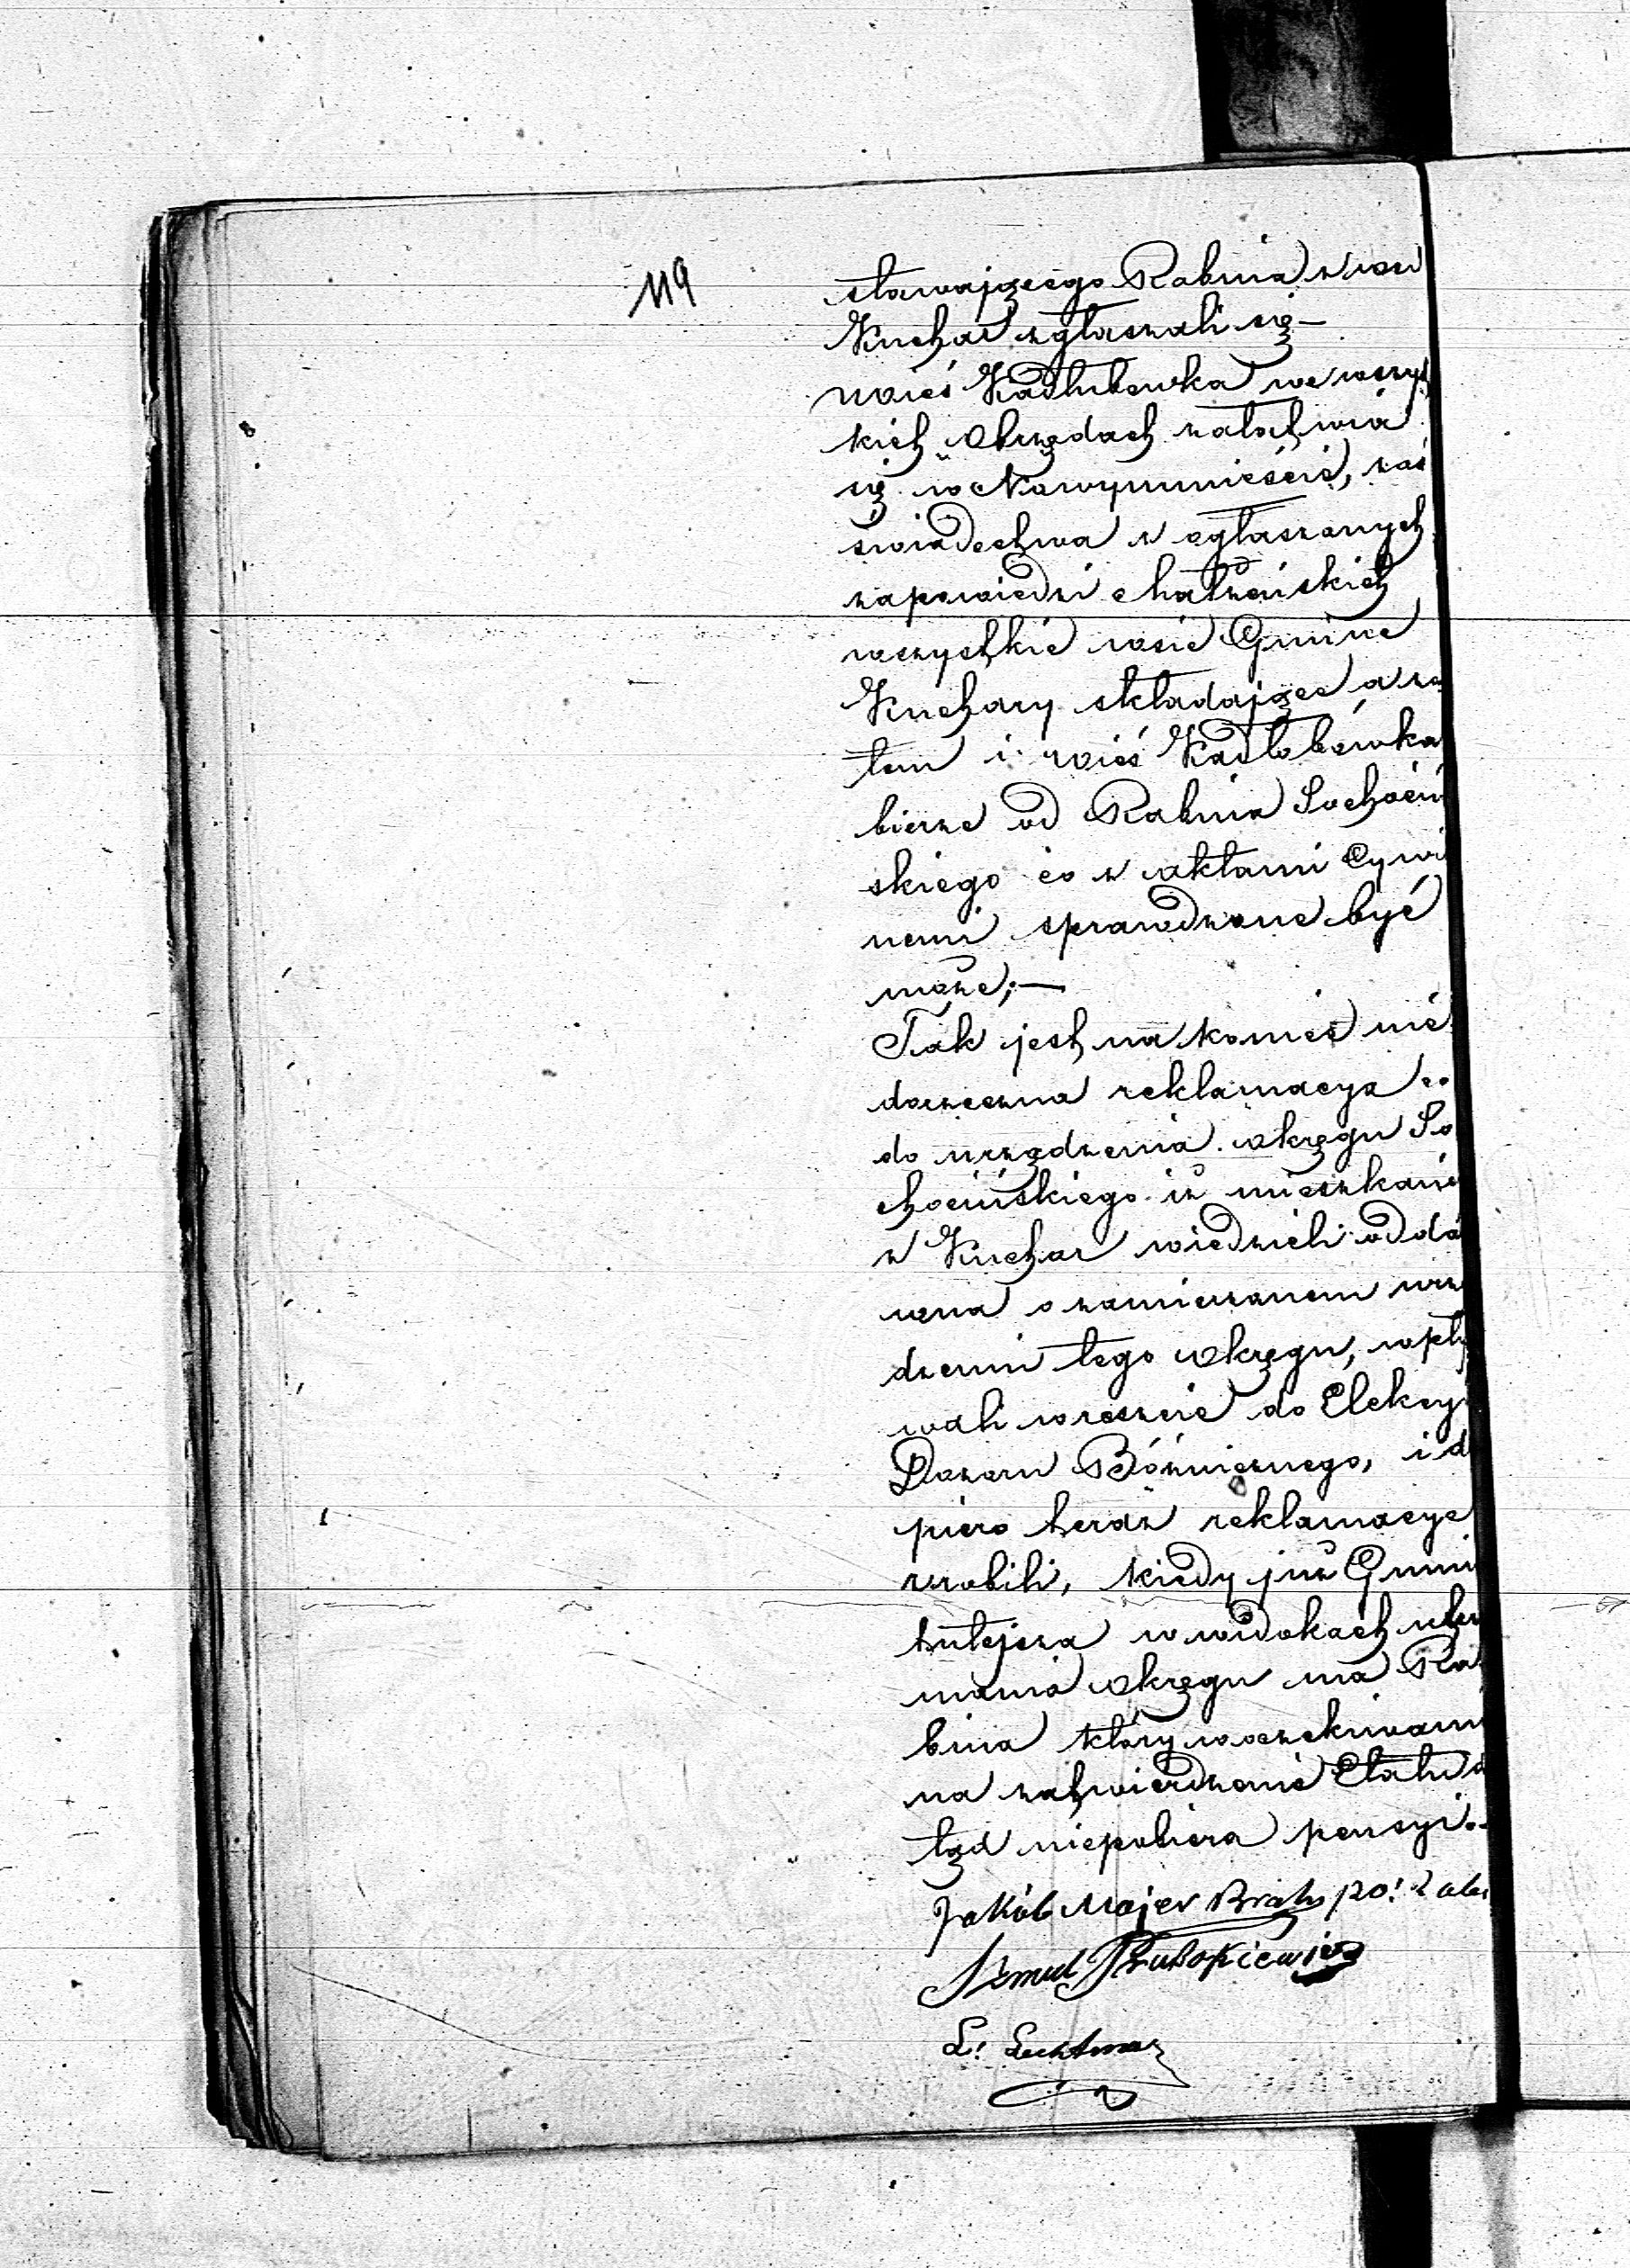 119
stawającego Rabina z wsi
Kuchar zgłaszali się—
wieś Kadłubowka we wszyst
kich Obrzędach załatwia
się w Nowymmieście, zaś
świadectwa z ogłaszanych
zapowiedzi małżeńskich
wszystkie wsie Gminę
Kuchary składające a za
tem i wieś Kadłobówka
bierze od Rabina Sochociń
skiego co z aktami Cywil
nemi sprawdzone być
może;—
Tak jest na koniec nie
dorzeczna reklamacya co
do urządzenia okręgu So
chocińskiego iż mieszkańcy
z Kuchar wiedzieli od da
wna o zamierzanem urzą
dzeniu tego okręgu, wpły
wali wreszcie do Elekcyi
Dozoru Bóżniczego, i do
piero teraz reklamacye
zrobili, kiedy już Gmina
tutejsza w widokach utrzy
mania okręgu ma Ra
bina który w oczekiwaniu
na zatwierdzenie Etatu do
tąd niepobiera pensyi.—
Jakób Majer
Szmul
L.